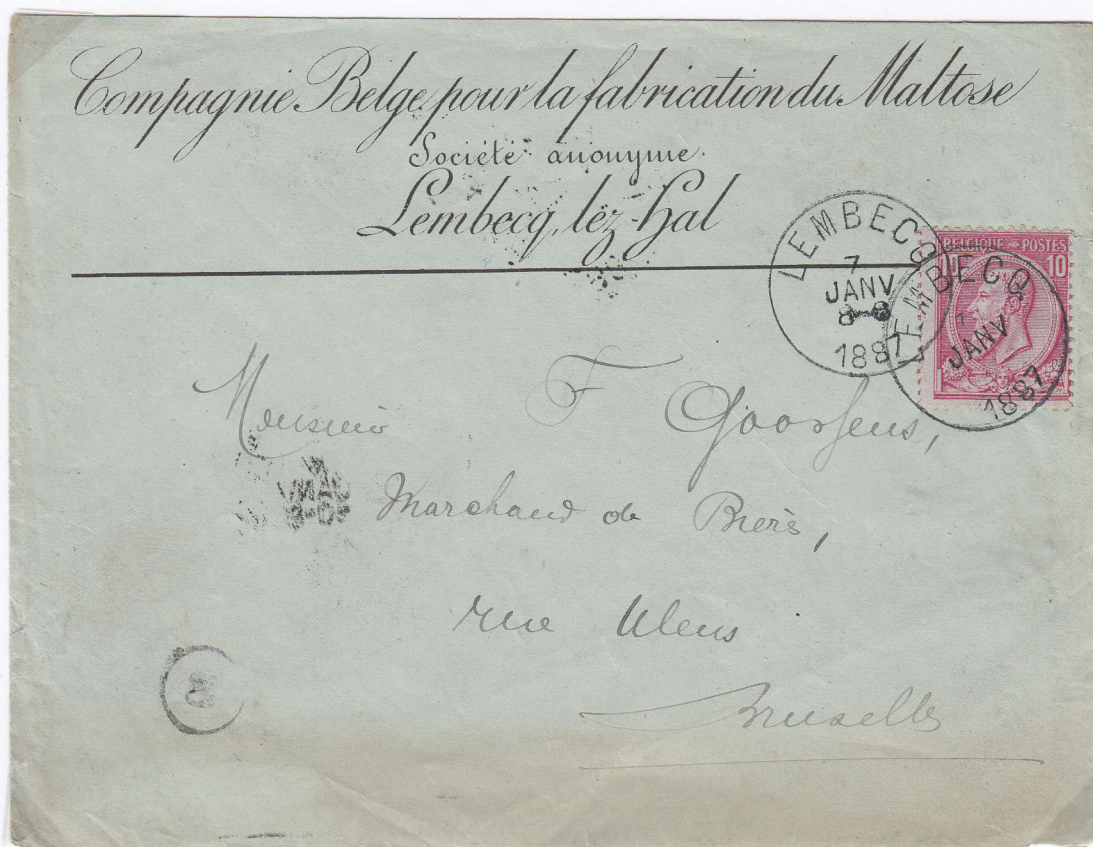 Compagnie Belge pour la fabrication du Maltose
Société anonyme.
Lembecq, lez-Hal
LEMBECQ
7
JANV
8-8
1887
BELGIQUE POSTES
10
LEMBECQ
JANV
1887
Monsieur F Goossens,
Marchand de Bière,
rue Ulens
Bruxelles